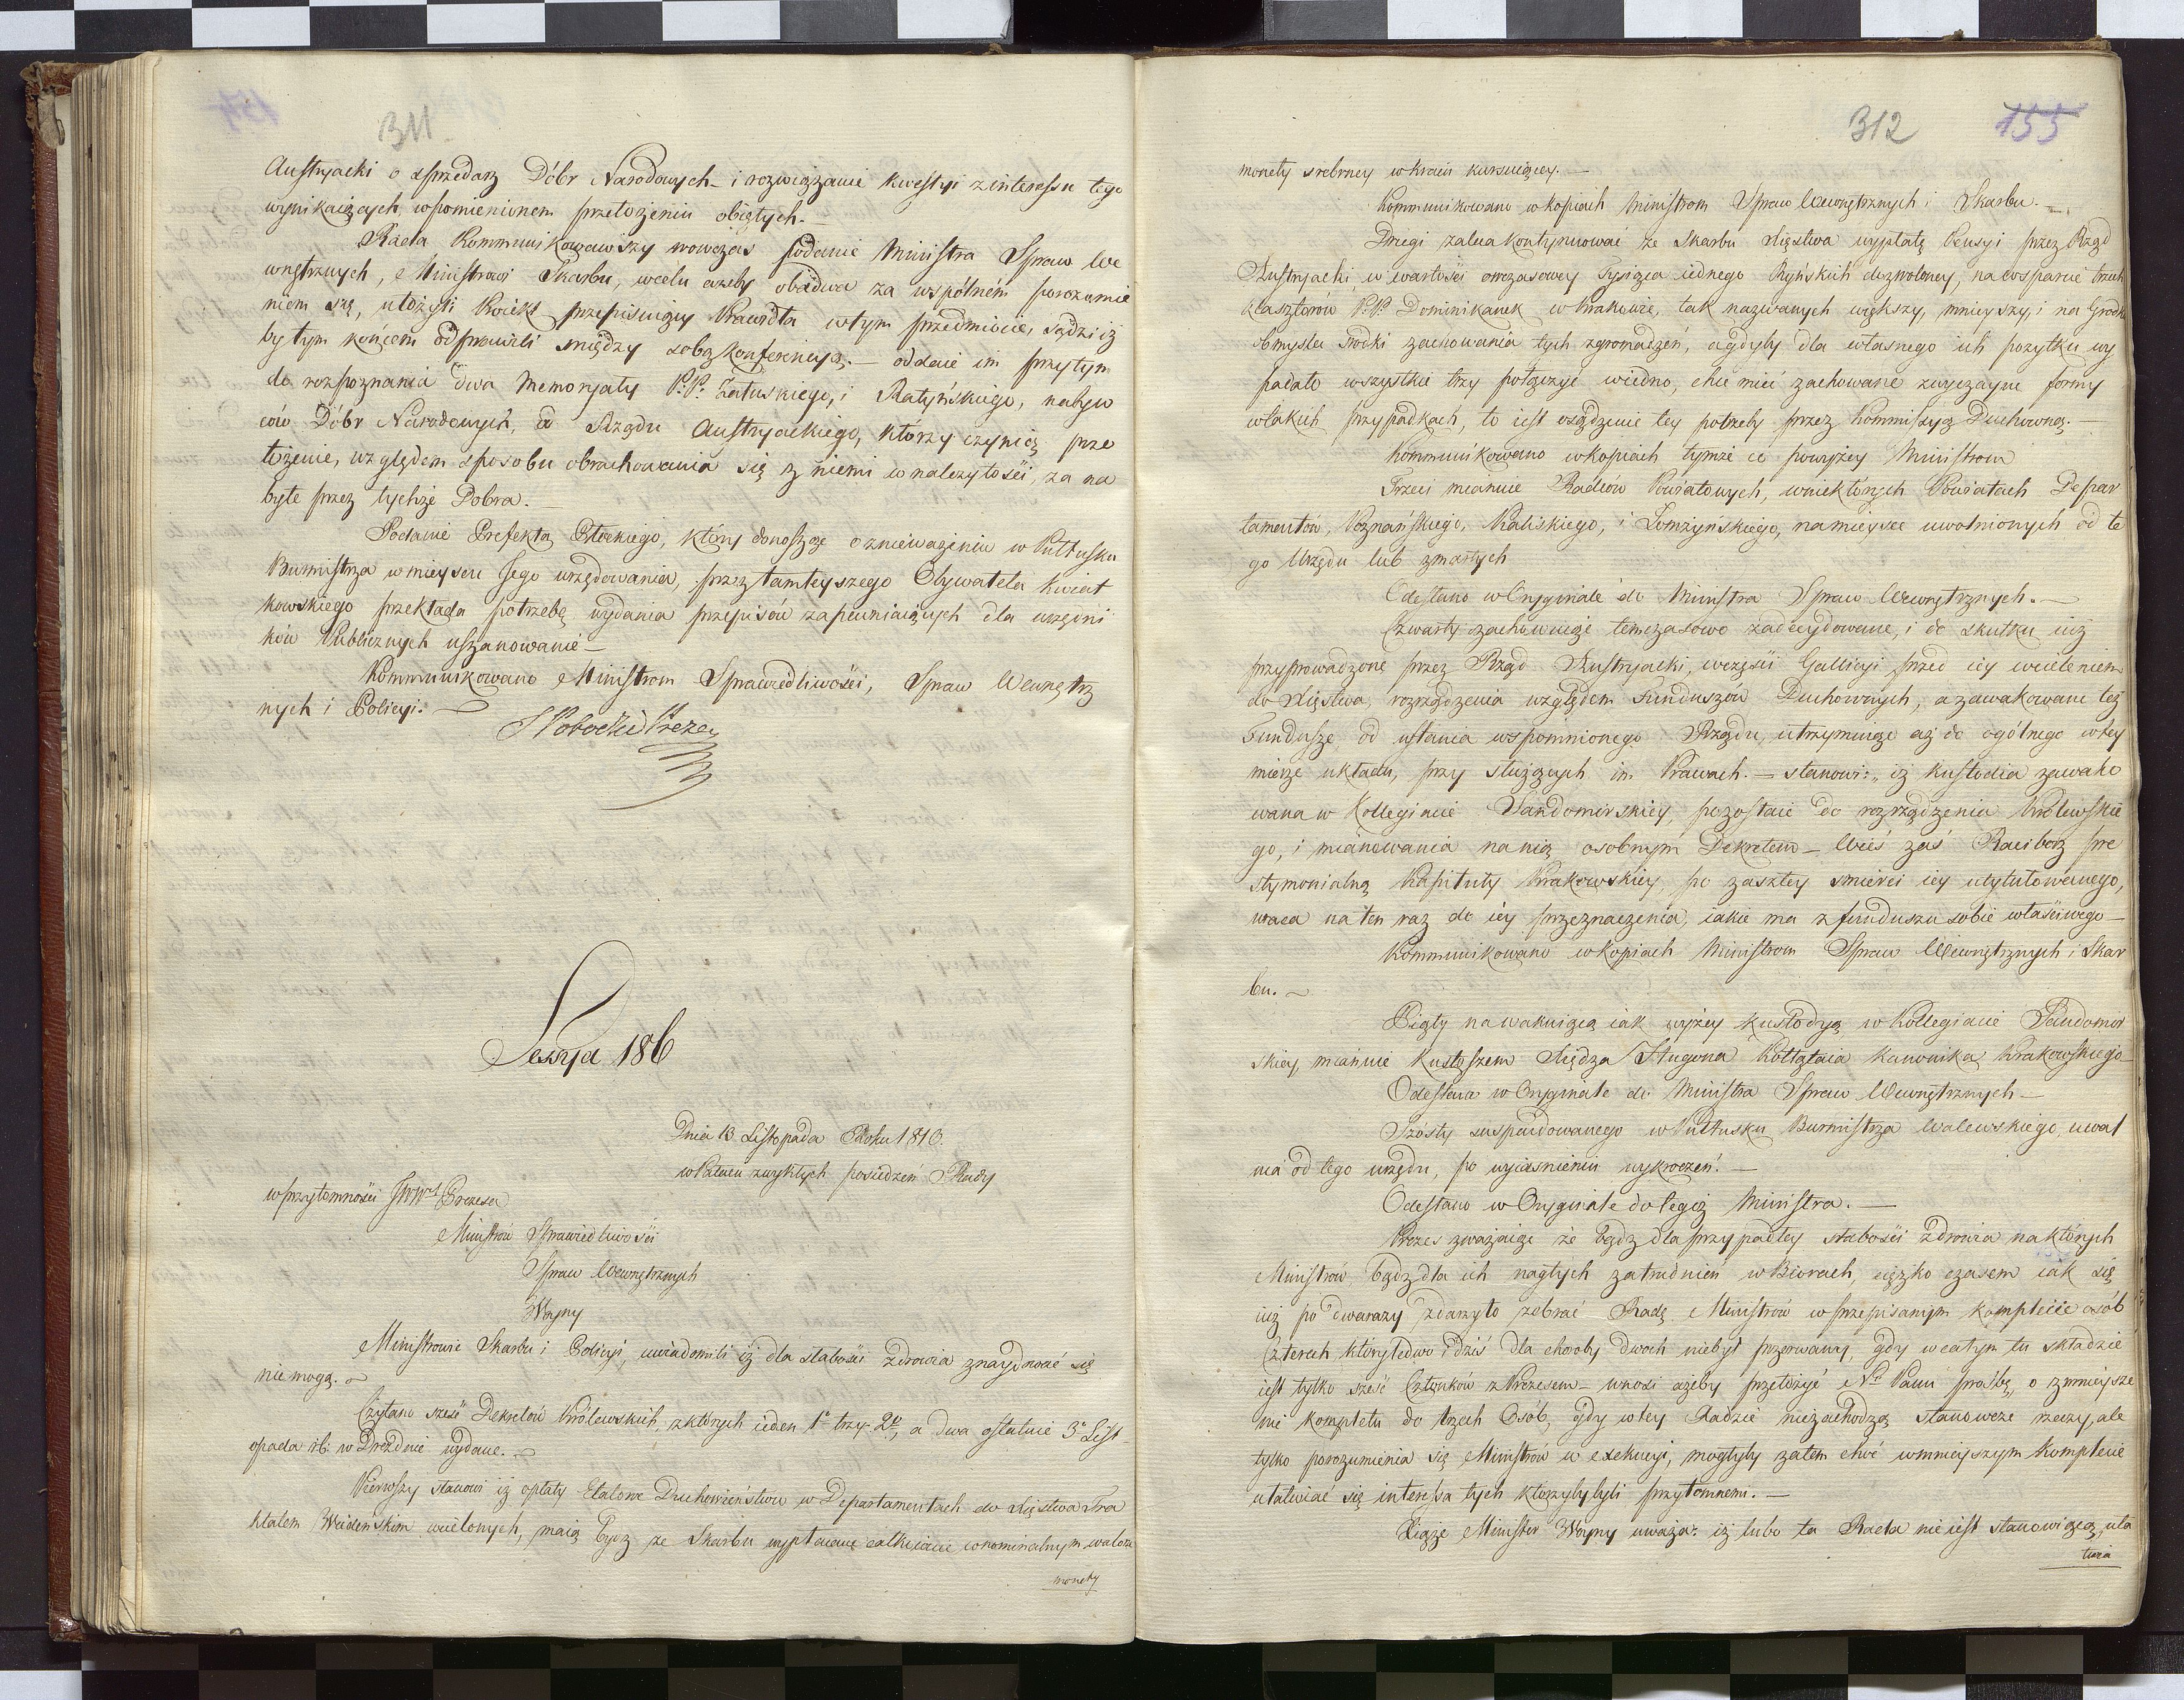 311
Austryacki o sprzedarz Dóbr Narodowych – i rozwiązanie kwestyi z interessu tego
wynikaiących, wpomienionem przełożeniu obiętych. –
Rada Kommunikowawszy wowczas podanie Ministra Spraw We
wnętrznych, Ministrowi Skarbu, wcelu ażeby obadwa za wspólném porozumie
niem się, ułożyli Proiekt przepisuiący Prawidła wtym przedmiocie, sądzi iż
by tym końcem odprawili między sobą konferencyą. – oddaie im przytym
do rozpoznania dwa Memoryały P.P. Załuskiego, i Ratyńskiego, nabyw
ców Dóbr Narodowych, od Rządu Austryackiego, ktorzy czynią prze
łożenie, względem sposobu obrachowania się z niemi w należytości, za na
byte przez tychże Dobra. –
Podanie Prefekta Płockiego, który donosząc o znieważeniu w Pułtusku
Burmistrza w mieyscu Jego urzędowania, przez tamteyszego Obywatela Kwiat
kowskiego przekłada potrzebę wydania przepisów zapewniaiących dla urzędni
ków Publicznych uszanowanie –
Kommunikowano Ministrom Sprawiedliwości, Spraw Wewnętrz
nych i Policyi. –
Prezes
Sessya 186
Dnia 13 Listopada Roku 1810.
w Pałacu zwykłych posiedzeń Rady
w przytomności JWW Prezesa
Ministrów Sprawiedliwości
Spraw Wewnętrznych
Woyny
Ministrowie Skarbu i Policyi, uwiadomili iż dla słabości zdrowia znaydować się
nie mogą. –
Czytano sześć Dekretów Królewskich, z których ieden 1° trzy 2°, a dwa ostatnie 3° List
opada rb: w Dreźdnie wydane. –
Pierwszy stanowi iż opłaty Etatowe Duchowieństwu w Departamentach do Xięstwa Tra
ktatem Wiedeńskim wcielonych, maią bydź ze Skarbu wypłacane całkowicie w nominalnym walorze
monety
312 155
monety srebrney w kraiu kursuiącey. –
Kommunikowano w kopiach Ministrom Spraw Wewnętrznych i Skarbu. –
Drugi zaleca kontynuować ze Skarbu Xięstwa wypłatę Pensyi przez Rząd
Austryacki, w wartości owczasowey Tysiąca iednego Ryńskich dozwoloney, na wsparcie trzech
klasztorów P.P. Dominikanek w Krakowie, tak nazwanych większy, mnieyszy, i na Grodku
obmyśla srodki zachowania tych zgromadzeń, a gdyby dla własnego ich pożytku wy
padało wszystkie trzy połączyć wiedno, chce mieć zachowane zwyczayne formy
w takich przypadkach, to iest osądzenie tey potrzeby przez kommissyą Duchowną. –
Kommunikowano w kopiach tymże co powyżey Ministrom
Trzeci mianuie Radców Powiatowych, w niektórych Powiatach Depar
tamentów, Poznańskiego, Kaliskiego, i Łomżyńskiego, na mieysce uwolnionych od te
go Urzędu lub zmarłych
Odesłano w Oryginale do Ministra Spraw Wewnętrznych. –
Czwarty zachowuiąc tymczasowo zadecydowane, i do skutku iuż
przyprowadzone przez Rząd Austryacki, w części Gallicyi przed iey wcieleniem
do Xięstwa, rozrządzenia względem Funduszów Duchownych, a zawakowane też
Fundusze od ustania wspomnionego Rządu, utrzymuiąc aż do ogólnego w tey
mierze układu, przy służących im Prawach. – stanowi: „ iż kustodia zawako
wana w Kollegiacie Sandomirskiey, pozostaie do rozrządzenia Królewskie
go, i mianowania na nią osobnym Dekretem – Wieś zaś Raciborz pre
stymonialna Kapituły Krakowskiey, po zaszłey smierci iey utytułowanego,
wraca na ten raz do iey przeznaczenia, iakie ma z funduszu sobie właściwego –
Kommunikowano w kopiach Ministrom Spraw Wewnętrznych i Skar
bu. –
Piąty na wakuiącą iak wyżey kustodyą w Kollegiacie Sandomir
skiey, mianuie Kustoszem Xiędza Hugona Kołłątaia Kanonika Krakowskiego –
Odesłano w Oryginale do Ministra Spraw Wewnętrznych –
Szósty suspendowanego w Pułtusku Burmistrza Walewskiego, uwal
nia od tego urzędu, po wyiaśnieniu wykroczeń. –
Odesłano w Oryginale do tegoż Ministra. –
Prezes zważaiąc że bądź dla przypadłey słabości zdrowia niektórych
Ministrów bądź dla ich nagłych zatrudnień w Biorach, ciężko czasem iak się
iuż po dwa razy zdarzyło zebrać Radę Ministrów w przepisanym komplecie osób
Czterech, który ledwo i dziś dla choroby dwoch niebył przerwany, gdy w całym tu składzie
iest tylko sześć Członków z Prezesem – wnosi ażeby przełożyć N° Panu prośbę, o zmnieysze
nie kompletu do trzech Osób, gdy w tey Radzie niezachodzą stanowcze rzeczy, ale
tylko porozumienia się Ministrów w exekucyi, mogłyby zatem choć w mnieyszym komplecie
ułatwiać się interessa tych ktorzyby byli przytomnemi. –
Xiąże Minister Woyny uważa: iż lubo ta Rada nie iest stanowiącą, uła
twia